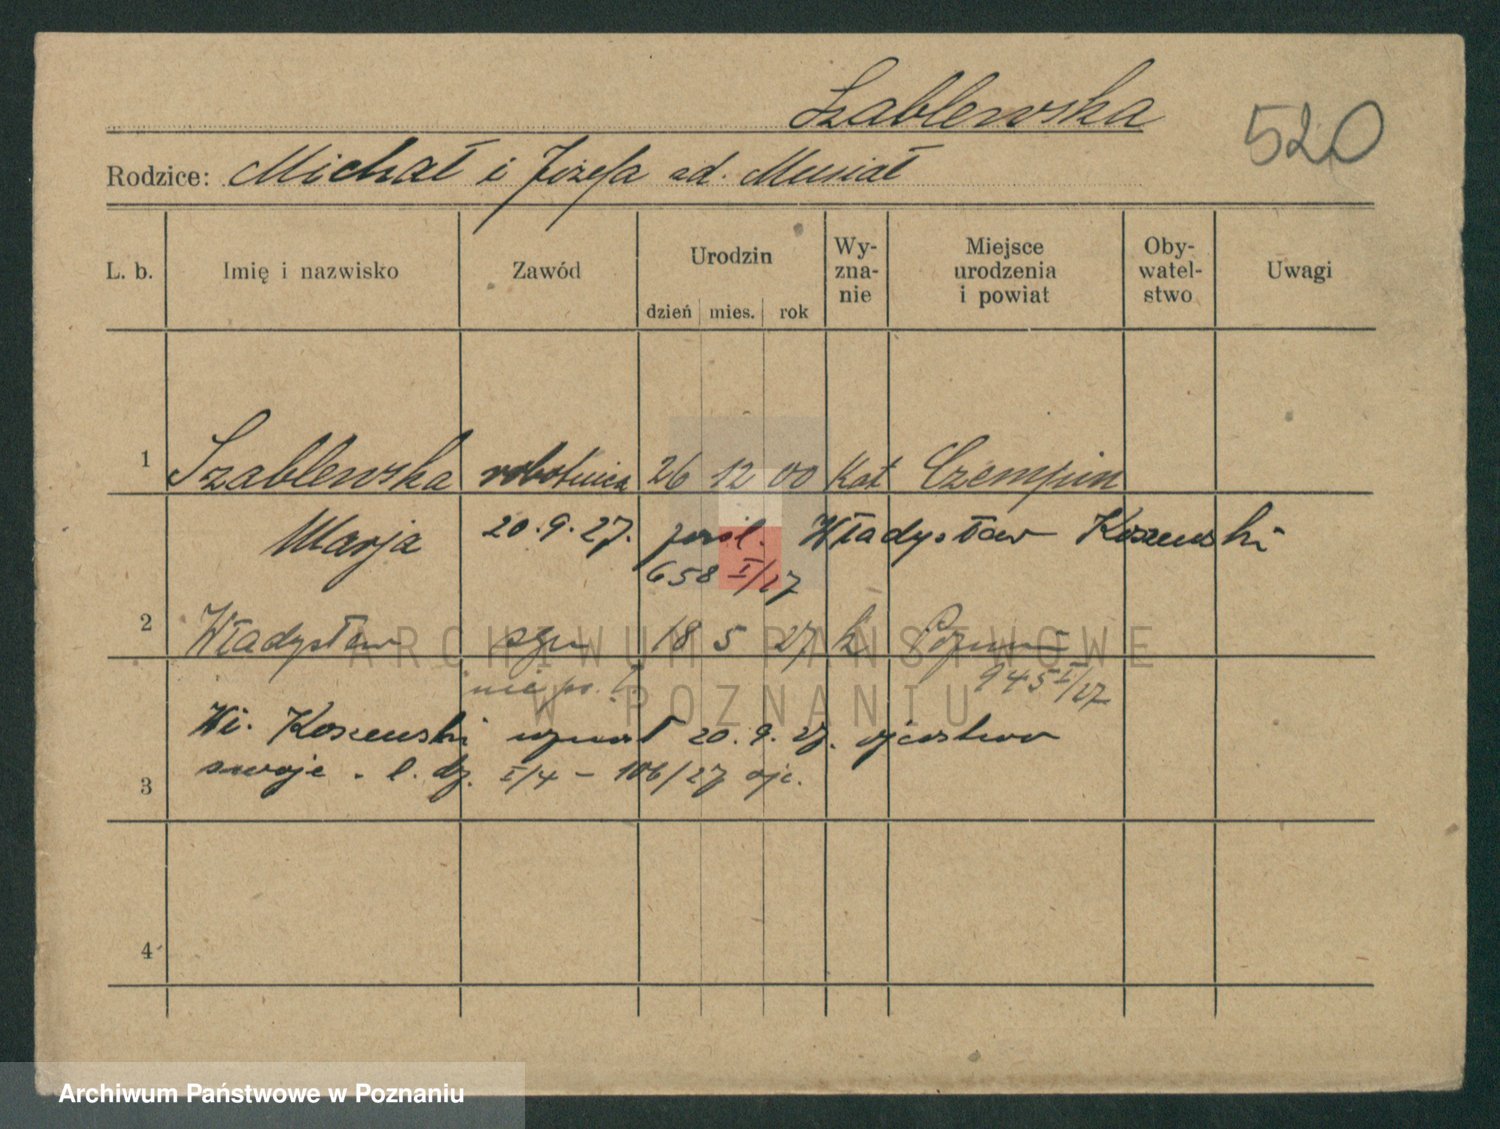 Szablewska
520
Rodzice: Michał i Józefa od. Musiał
L. b. Imię i nazwisko Zawód Urodzin dzień mies. rok Wyznanie Miejsce urodzenia i powiat Obywatelstwo Uwagi
1 Szablewska robotnica 26 12 00 Kat Czempin
Marja 20.9.27. pośl. Władysław Koszewski
658 I/27
2 Władysław syn 18 5 27 k Poznań
945 I/27
Wł. Koszewski uznał 20.9.27. ojcostwo
3 swoje. l. dz. I/4 – 106/27 ojc.
4
ARCHIWUM PAŃSTWOWE
W POZNANIU
Archiwum Państwowe w Poznaniu